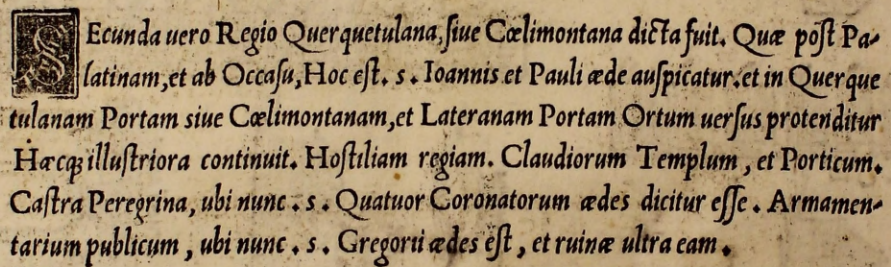 SEcunda uero Regio Querquetulana, ſiue Cœlimontana dicta fuit. Quæ poſt Pa-
latinam, et ab Occaſu, Hoc eſt. s. Ioannis et Pauli æde auſpicatur. et in Querque
tulanam Portam siue Cœlimontanam, et Lateranam Portam Ortum uerſus protenditur
Hæcꝗ; illuſtriora continuit. Hoſtiliam regiam. Claudiorum Templum, et Porticum.
Caſtra Peregrina, ubi nunc. s. Quatuor Coronatorum ædes dicitur eſſe. Armamen-
tarium publicum, ubi nunc. s. Gregorii ædes eſt, et ruinæ ultra eam.